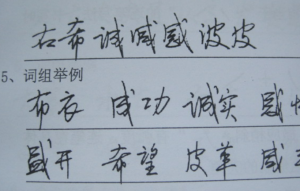 右布诚咸感波皮
5、词组举例
布衣 成功 诚实
盛开 希望 皮革